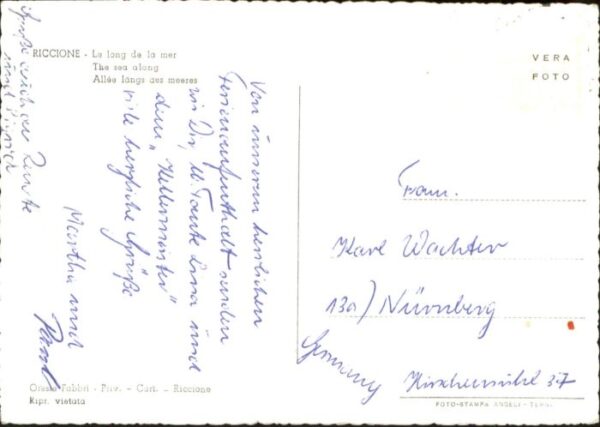 RICCIONE - Le long de la mer
The sea along
Allée längs des meeres
VERA
FOTO
Von unserem herrlichen
Ferienaufenthalt senden
wir Dir, u. Tante Lina und
dem „Kellermeister"
viele herzliche Grüße
Martha und
Grüße auch an Tante
Fam.
Karl Wachter
13a) Nürnberg
Germany
Oreste Fabbri - Priv. - Cart. - Riccione
Ripr. vietata
FOTO-STAMPA ANGELI - TERNI